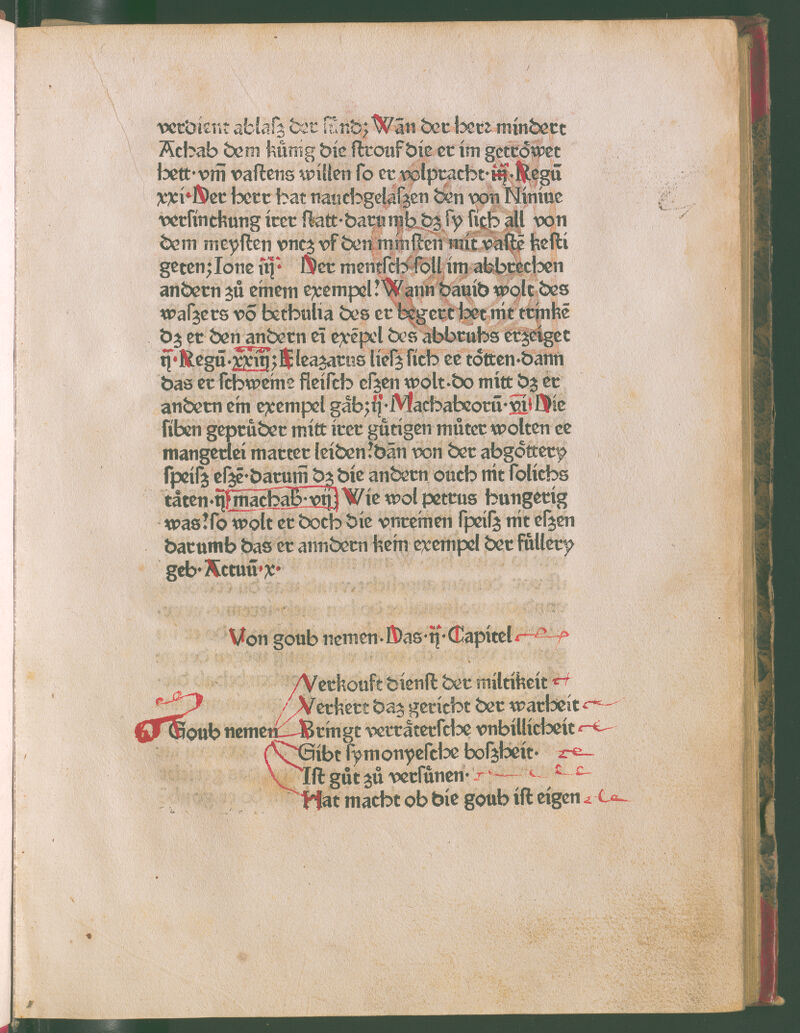 verdient ablaſʒ der ſünd; Wān der herꝛ mindert
Achab dem kuͤnig die ſtrouf die er im getroͤwet
hett·vm̄ vaſtens willen ſo er volpracht·iij·Regū
xxi·Der herr hat nauchgelaſʒen den von Niniue
verſinckung irer ſtatt·darumb dʒ ſy ſich all von
dem meyſten vncʒ vf den minſten mit vaſtē keſti
geten;Ione iij· Der mentſch ſoll im abbrechen
andern zuͦ einem exempel? Wann dauid wolt des
waſʒers vō bethulia des er begert het nit trinkē
dʒ er den andern eī exēpel des abbruhs erzeiget
ij·Regū·xxiij; Eleazarus lieſʒ ſich ee toͤtten·dann
das er ſchweinē fleiſch eſʒen wolt·do mitt dʒ er
andern ein exempel gaͤb;ij·Machabeorū·vi Die
ſiben gepruͤder mitt irer guͤtigen muͦter wolten ee
mangerlei marter leiden?dān von der abgoͤttery
ſpeiſʒ eſʒē·darum̄ dʒ die andern ouch nit ſolichs
taͤten·ij machab·vij Wie wol petrus hungerig
was?ſo wolt er doch die vnreinen ſpeiſʒ nit eſʒen
darumb das er anndern kein exempel der fuͤllery
geb·Actuū·x·
Von goub nemen·Das·ij·Capitel
Verkouft dienſt der miltikeit
Verkert daʒ gericht der warheit
Goub nemen Bringt verraͤterſche vnbillicheit
Gibt ſymonyeſche boſʒheit·
Iſt guͦt zuͦ verſuͤnen·
Hat macht ob die goub iſt eigen